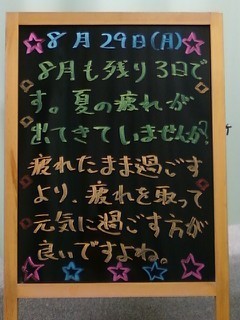 8月29日(月)
8月も残り3日で
す。夏の疲れが
出てきていませんか?
疲れたまま過ごす
より、疲れを取って
元気に過ごす方が
良いですよね。